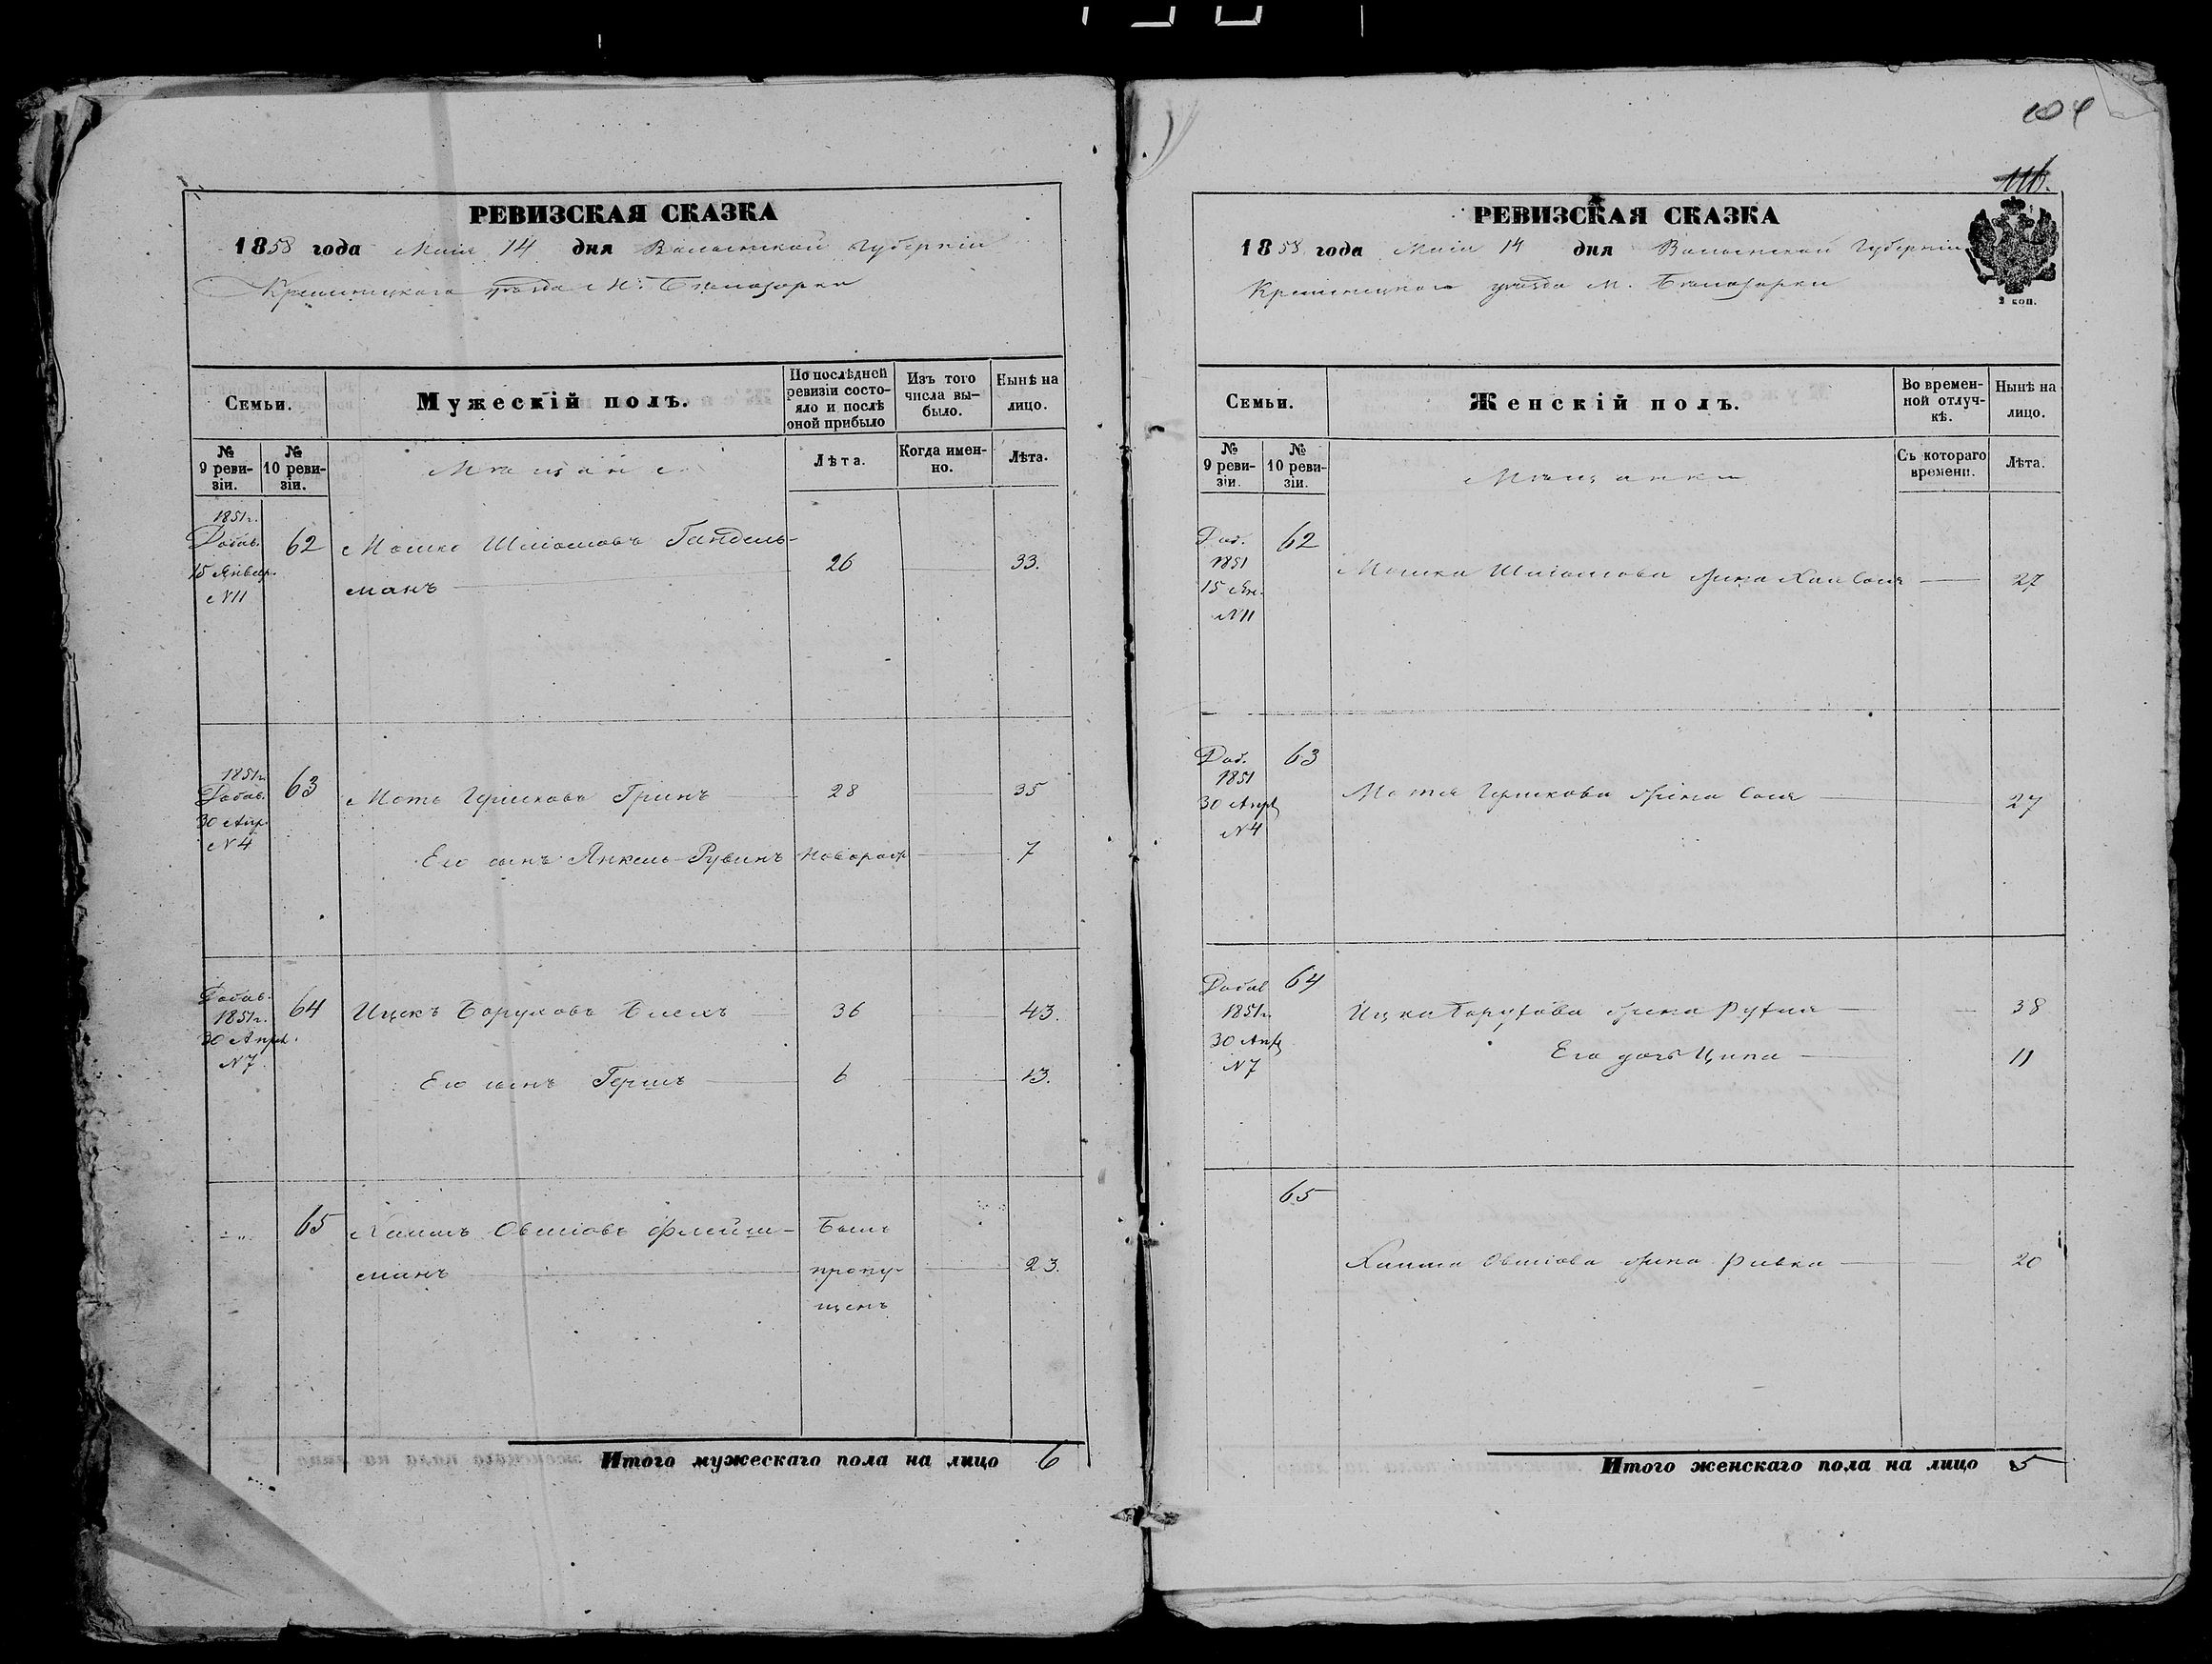 РЕВИЗСКАЯ СКАЗКА
1858 года Маія 14 дня Волынской Губерніи
Кременецкаго уѣзда М. Бѣлозорки
Семьи.
Мужескій полъ.
По послѣдней ревизіи состо-
яло и послѣ
оной прибыло
Изъ того
числа вы-
было.
Нынѣ на
лицо.
№
9 реви-
зіи.
№
10 реви-
зіи.
Мѣщане
Лѣта.
Когда имен-
но.
Лѣта.
1851г.
Добав.
15 Январ.
№11
62 Мошко Шліомовъ Гандель-
манъ 26 33.
1851г.
Добав.
30 Апр.
№4
63 Моть Гершковъ Гринъ 28 35
Его сынъ Янкель-Рувинъ новорож 7
Добав.
1851г.
30 Апрѣ.
№7
64 Ицекъ Боруховъ 36 43.
Его сынъ Гершъ 6 13.
65 Хаимъ Овшіовъ Флейш-
манъ 23.
Былъ
пропу-
щенъ
Итого мужескаго пола на лицо 6
104
116.
РЕВИЗСКАЯ СКАЗКА
1858 года Маія 14 дня Волынской Губерніи
Кременецкаго уѣзда М. Бѣлозорки
2 коп.
Семьи.
Женскій полъ.
Во времен-
ной отлуч-
кѣ.
Нынѣ на
лицо.
№
9 реви-
зіи.
№
10 реви-
зіи.
Мѣщанки
Съ котораго
времени.
Лѣта.
Доб.
1851
15 Ян.
№11
62
Мошка Шліомова жена Хая Сося 27
Доб.
1851
30 Апр
№4
63
Мотя Гершкова жена Сося 27
Добав
1851г.
30 Апр
№7
64
Ицка Борухова жена Рухля 38
Его дочь Ципа 11
65
Хаима Овшіова жена Ривка 20
Итого женскаго пола на лицо 5